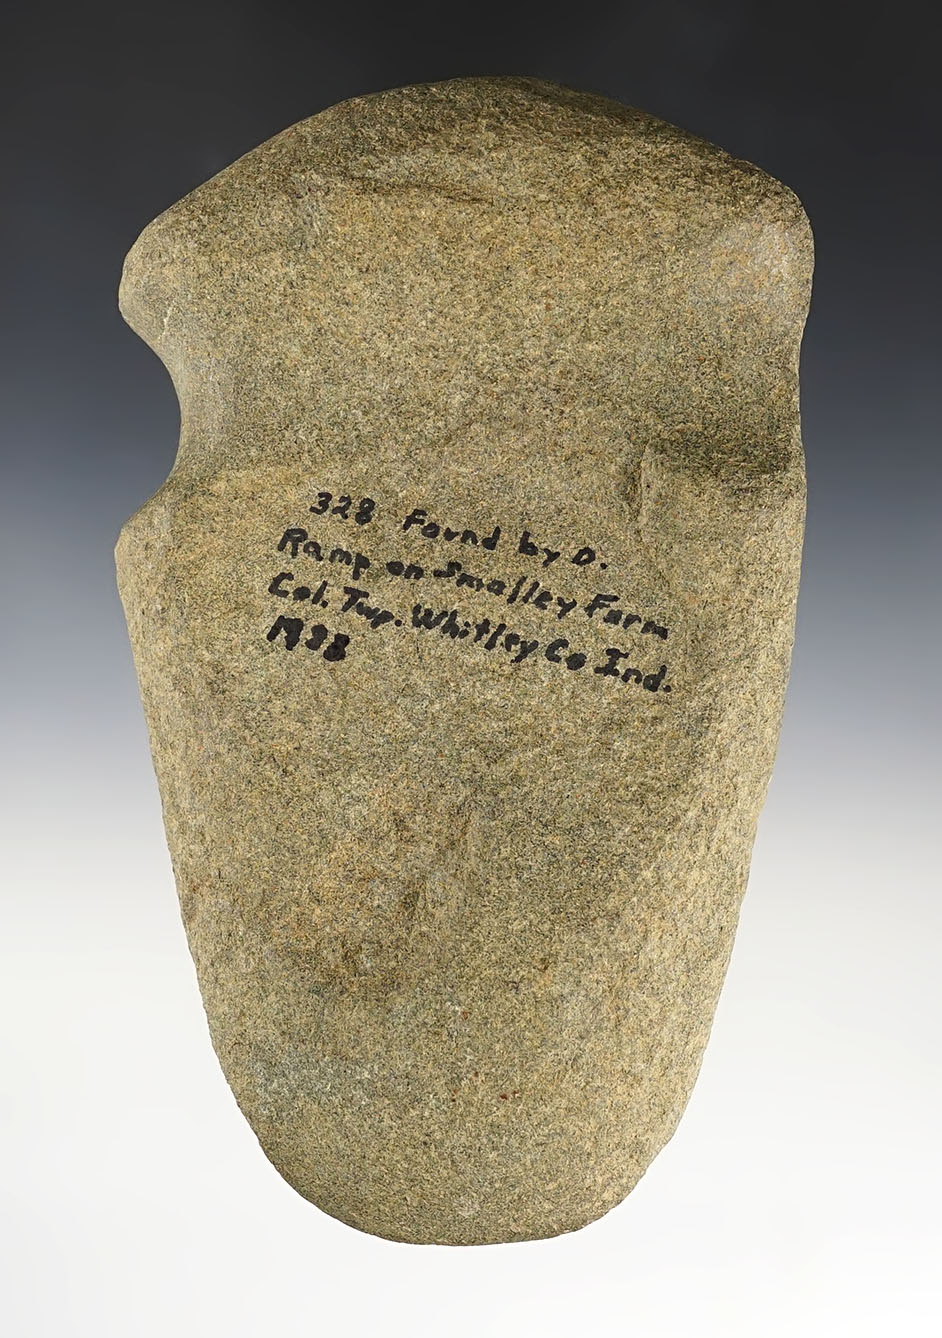 328 Found by D.
Ramp on Smalley Farm
Col. Twp. Whitley Co Ind.
1988